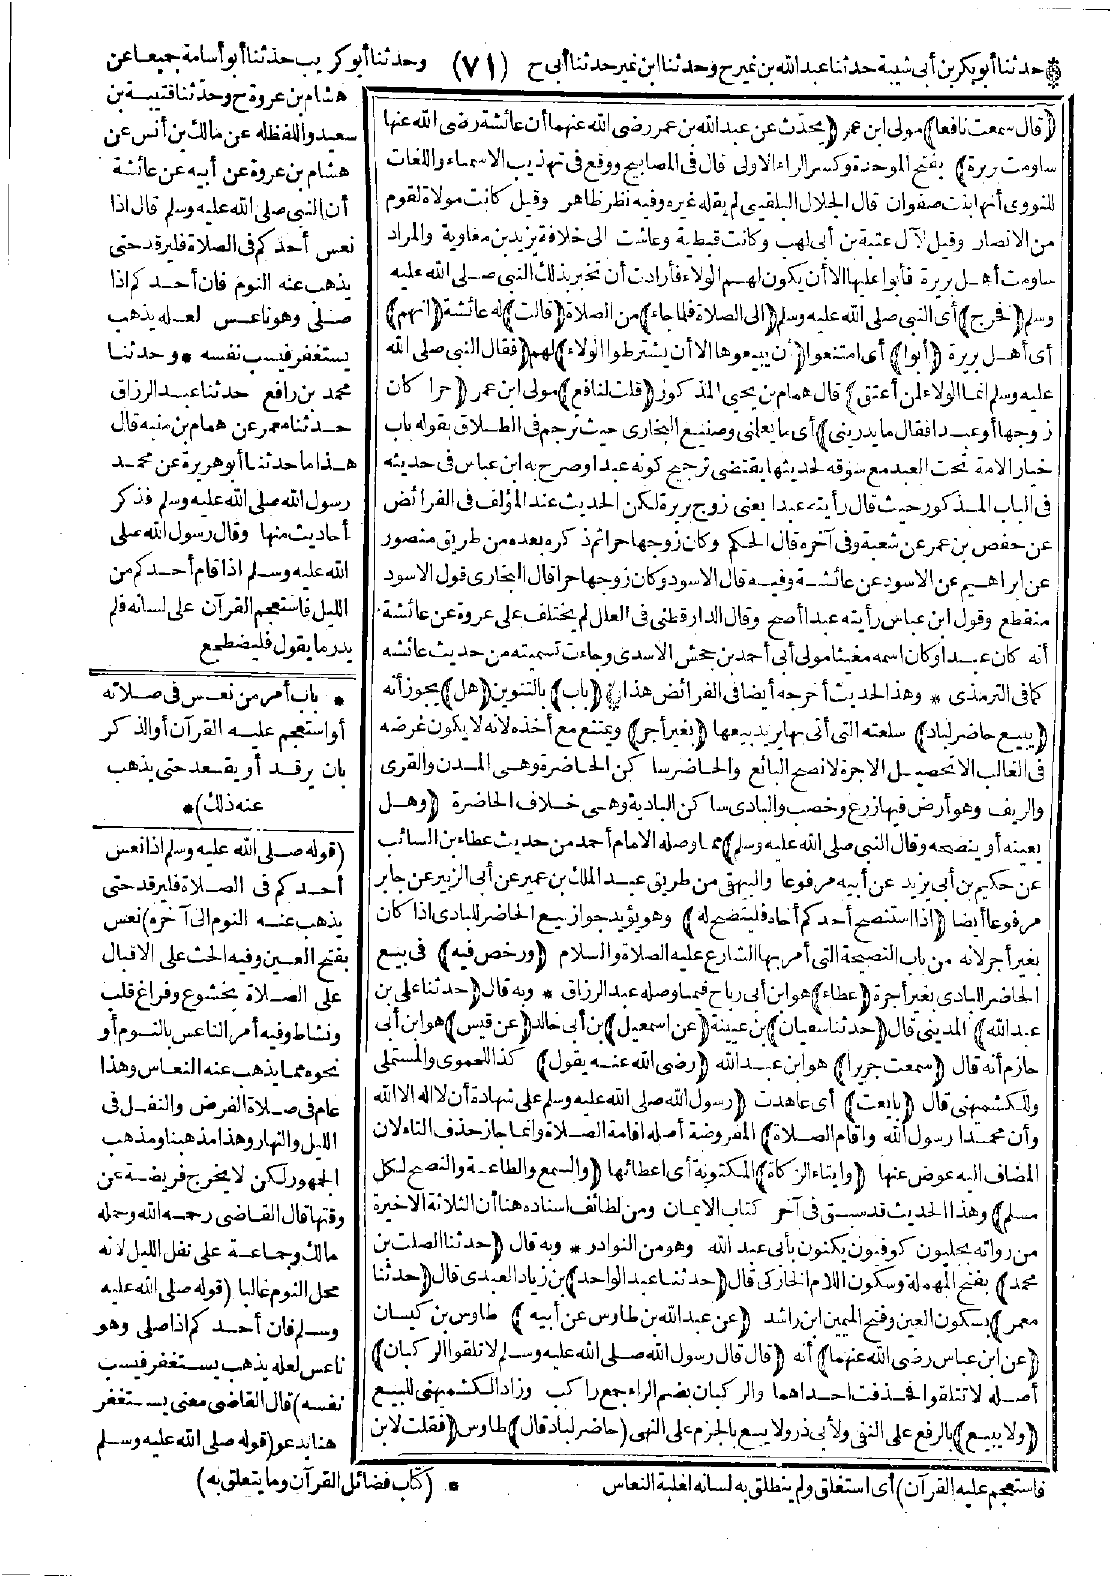 حدثنا أبو بكر بن أبي شيبة حدثنا عبد الله بن نمير ح وحدثنا ابن نمير حدثنا أبي ح (٧١) وحدثنا أبو كريب حدثنا أبو أسامة جميعا عن
هشام بن عروة ح وحدثنا قتيبة بن
سعيد واللفظ له عن مالك بن أنس عن
هشام بن عروة عن أبيه عن عائشة
أن النبي صلى الله عليه وسلم قال اذا
نعس أحدكم في الصلاة فليرقد حتى
يذهب عنه النوم فان أحدكم اذا
صلى وهو ناعس لعله يذهب
يستغفر فيسب نفسه * وحدثنا
محمد بن رافع حدثنا عبد الرزاق
حدثنا معمر عن همام بن منبه قال
هذا ما حدثنا أبو هريرة عن محمد
رسول الله صلى الله عليه وسلم فذكر
أحاديث منها وقال رسول الله صلى
الله عليه وسلم اذا قام أحدكم من
الليل فاستعجم القرآن على لسانه فلم
يدر ما يقول فليضطجع
* باب أمر من نعس في صلاته
أو استعجم عليه القرآن أو الذكر
بان يرقد أو يقعد حتى يذهب
عنه ذلك) *
(قوله صلى الله عليه وسلم اذا نعس
أحدكم في الصلاة فليرقد حتى
يذهب عنه النوم الى آخره) نعس
بفتح العين وفيه الحث على الاقبال
على الصلاة بخشوع وفراغ قلب
ونشاط وفيه أمر الناعس بالنوم أو
نحوه مما يذهب عنه النعاس وهذا
عام في صلاة الفرض والنفل في
الليل والنهار وهذا مذهبنا ومذهب
الجمهور لكن لا يخرج فريضة عن
وقتها قال القاضي رحمه الله وحمله
مالك وجماعة على نفل الليل لانه
محل النوم غالبا (قوله صلى الله عليه
وسلم فان أحدكم اذا صلى وهو
ناعس لعله يذهب يستغفر فيسب
نفسه) قال القاضي معنى يستغفر
هنا يدعو (قوله صلى الله عليه وسلم
فاستعجم عليه القرآن) أي استغلق ولم ينطلق به لسانه لغلبة النعاس * (كتاب فضائل القرآن وما يتعلق به)
(قال سمعت نافعا) مولى ابن عمر (يحدث عن عبد الله بن عمر رضي الله عنهما أن عائشة رضي الله عنها
ساومت بريرة) بفتح الموحدة وكسر الراء الاولى قال في المصابيح ووقع في تهذيب الاسماء واللغات
للنووي أنها بنت صفوان قال الجلال البلقيني لم يقله غيره وفيه نظر ظاهر وقيل كانت مولاة لقوم
من الانصار وقيل لآل عتبة بن أبي لهب وكانت قبطية وعاشت الى خلافة يزيد بن معاوية والمراد
ساومت أهل بريرة فأبوا عليها الا أن يكون لهم الولاء فأرادت أن تخبر بذلك النبي صلى الله عليه
وسلم (فخرج) أي النبي صلى الله عليه وسلم (الى الصلاة فلما جاء) من الصلاة (قالت) له عائشة (انهم)
أي أهل بريرة (أبوا) أي امتنعوا (أن يبيعوها الا أن يشترطوا الولاء) لهم (فقال النبي صلى الله
عليه وسلم انما الولاء لمن أعتق) قال همام بن يحيى المذكور (قلت لنافع) مولى ابن عمر (حرا كان
زوجها أو عبدا فقال ما يدريني) أي ما يعلمني وصنيع البخاري حيث ترجم في الطلاق بقوله باب
خيار الامة تحت العبد مع سوقه لحديثها يقتضي ترجيح كونه عبدا وصرح به ابن عباس في حديثه
في الباب المذكور حيث قال رأيته عبدا يعني زوج بريرة لكن الحديث عند المؤلف في الفرائض
عن حفص بن عمر عن شعبة وفي آخره قال الحكم وكان زوجها حرا ثم ذكره بعده من طريق منصور
عن ابراهيم عن الاسود عن عائشة وفيه قال الاسود وكان زوجها حرا قال البخاري قول الاسود
منقطع وقول ابن عباس رأيته عبدا أصح وقال الدارقطني في العلل لم يختلف على عروة عن عائشة
أنه كان عبدا وكان اسمه مغيثا مولى أبي أحمد بن جحش الاسدي وجاءت تسميته من حديث عائشة
كما في الترمذي * وهذا الحديث أخرجه أيضا في الفرائض هذا (باب) بالتنوين (هل) يجوز أنه
(يبيع حاضر لباد) سلعته التي أتى بها يريد بيعها (بغير أجر) ويمتنع مع أخذه لانه لا يكون غرضه
في الغالب الا تحصيل الاجرة لا نصح البائع والحاضر ساكن الحاضرة وهي المدن والقرى
والريف وهو أرض فيها زرع وخصب والبادي ساكن البادية وهي خلاف الحاضرة (وهل
يعينه أو ينصحه وقال النبي صلى الله عليه وسلم) مما وصله الامام أحمد من حديث عطاء بن السائب
عن حكيم بن أبي يزيد عن أبيه مرفوعا والبيهقي من طريق عبد الملك بن عمير عن أبي الزبير عن جابر
مرفوعا أيضا (اذا استنصح أحدكم أخاه فلينصح له) وهو يؤيد جواز بيع الحاضر للبادي اذا كان
بغير أجر لانه من باب النصيحة التي أمر بها الشارع عليه الصلاة والسلام (ورخص فيه) في بيع
الحاضر للبادي بغير أجرة (عطاء) هو ابن أبي رباح فيما وصله عبد الرزاق * وبه قال (حدثنا علي بن
عبد الله) المديني قال (حدثنا سفيان) بن عيينة (عن اسمعيل) بن أبي خالد (عن قيس) هو ابن أبي
حازم أنه قال (سمعت جريرا) هو ابن عبد الله (رضي الله عنه يقول) كذا للحموي والمستملي
وللكشميهني قال (بايعت) أي عاهدت (رسول الله صلى الله عليه وسلم على شهادة أن لا اله الا الله
وأن محمدا رسول الله واقام الصلاة) المفروضة أصله اقامة الصلاة وانما جاز حذف التاء لان
المضاف اليه عوض عنها (وايتاء الزكاة) المكتوبة أي اعطائها (والسمع والطاعة والنصح لكل
مسلم) وهذا الحديث قد سبق في آخر كتاب الايمان ومن لطائف اسناده هنا أن الثلاثة الاخيرة
من رواته بجليون كوفيون يكنون بأبي عبد الله وهو من النوادر * وبه قال (حدثنا الصلت بن
محمد) بفتح المهملة وسكون اللام الخاركي قال (حدثنا عبد الواحد) بن زياد العبدي قال (حدثنا
معمر) بسكون العين وفتح الميمين ابن راشد (عن عبد الله بن طاوس عن أبيه) طاوس بن كيسان
(عن ابن عباس رضي الله عنهما) أنه (قال قال رسول الله صلى الله عليه وسلم لا تلقوا الركبان)
أصله لا تتلقوا فحذفت احداهما والركبان بضم الراء جمع راكب وزاد الكشميهني للبيع
(ولا يبيع) بالرفع على النفي ولأبي ذر ولا يبع بالجزم على النهي (حاضر لباد قال) طاوس (فقلت لابن